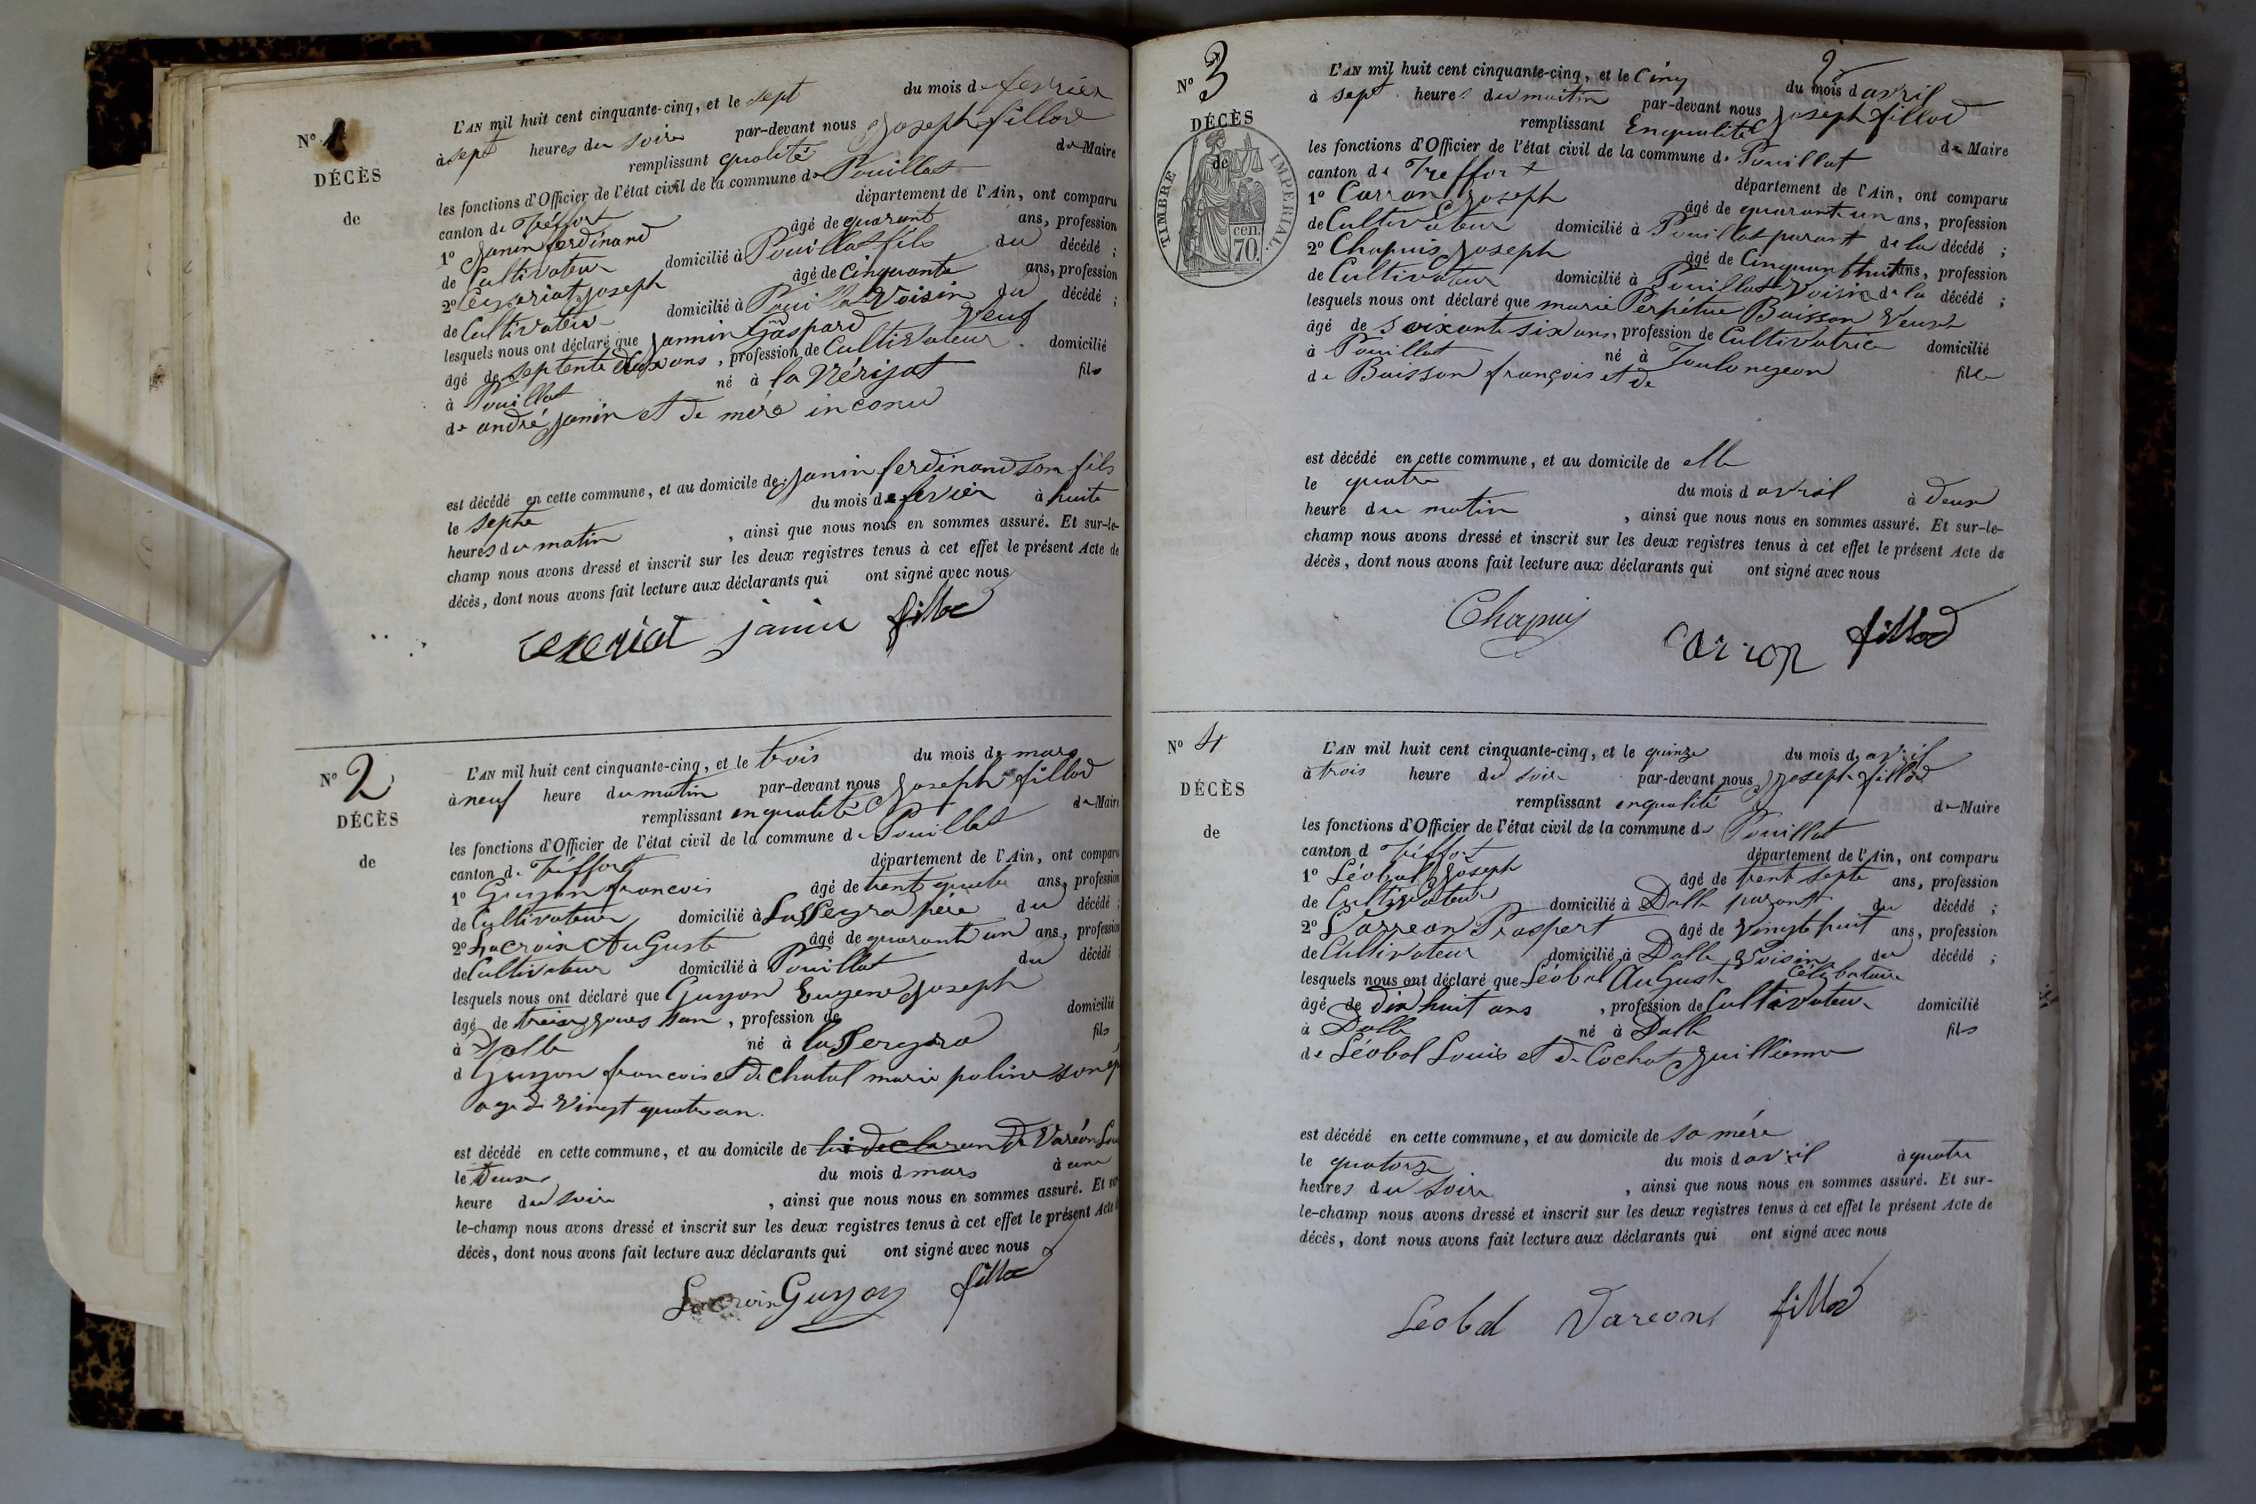 N° 1
DÉCÈS
de
L'AN mil huit cent cinquante-cinq, et le sept du mois de fevrier
à sept heures du soire par-devant nous Joseph fillod
remplissant qualité de Maire
les fonctions d'Officier de l'état civil de la commune de Pouillat
canton de Tréffort département de l'Ain, ont comparu
1° Janin ferdinand âgé de quarant ans, profession
de Cultivateur domicilié à Pouillat fils du décédé ;
2° Ceyzeriat Joseph âgé de Cinquante ans, profession
de Cultivateur domicilié à Pouillat Voisin du décédé ;
lesquels nous ont déclaré que Jannin Gaspard Veuf
âgé de septente deux ans, profession de Cultivateur domicilié
à Pouillat né à la Nérizat fils
de andré janin et de mére inconu
est décédé en cette commune, et au domicile de Janin ferdinand son fils
le septe du mois de fevier à huite
heures du matin , ainsi que nous nous en sommes assuré. Et sur-le-
champ nous avons dressé et inscrit sur les deux registres tenus à cet effet le présent Acte de
décès, dont nous avons fait lecture aux déclarants qui ont signé avec nous
cezeriat janin fillod
N° 2
DÉCÈS
de
L'AN mil huit cent cinquante-cinq, et le trois du mois de mars
à neuf heure du matin par-devant nous Joseph fillod
remplissant enqualité de Maire
les fonctions d'Officier de l'état civil de la commune de Pouillat
canton de Tréffort département de l'Ain, ont comparu
1° Guyon francois âgé de trent quatre ans, profession
de Cultivateur domicilié à père du décédé ;
2° Lacroix AuGuste âgé de quarante un ans, profession
de Cultivateur domicilié à Pouillat du décédé
lesquels nous ont déclaré que Guyon Eugene Joseph
âgé de , profession de domicilié
à né à fils
d Guyon francois et de chatal marie poline
age de Vingt quatre an.
est décédé en cette commune, et au domicile de Varéon
le deux du mois d mars à une
heure du soire , ainsi que nous nous en sommes assuré. Et sur
le-champ nous avons dressé et inscrit sur les deux registres tenus à cet effet le présent Acte
décès, dont nous avons fait lecture aux déclarants qui ont signé avec nous
Lacroix Guyon fillod
N° 3
DÉCÈS
de
TIMBRE IMPERIAL.
cen.
70.
2
L'AN mil huit cent cinquante-cinq, et le Cinq du mois d avril
à sept heures du maitin par-devant nous Joseph fillod
remplissant Enqualité de Maire
les fonctions d'Officier de l'état civil de la commune de Pouillat
canton de Treffort département de l'Ain, ont comparu
1° Carron Joseph âgé de quarante un ans, profession
de Cultivateur domicilié à Pouillat parant de la décédé ;
2° Chapuis Joseph âgé de Cinquant huit ans, profession
de Cultivateur domicilié à Pouillat Voisin de la décédé ;
lesquels nous ont déclaré que marie Perpétue Buisson Veuve
âgé de soixante six ans, profession de Cultivatrice domicilié
à Pouillat né à Toulongeon
de Buisson françois et de fille
est décédé en cette commune, et au domicile de elle
le quatre du mois d avril à deux
heure du matin , ainsi que nous nous en sommes assuré. Et sur-le-
champ nous avons dressé et inscrit sur les deux registres tenus à cet effet le présent Acte de
décès, dont nous avons fait lecture aux déclarants qui ont signé avec nous
Chapuis Carron fillod
N° 4
DÉCÈS
de
L'AN mil huit cent cinquante-cinq, et le quinze du mois d avril
à trois heure du soir par-devant nous Joseph fillod
remplissant enqualité de Maire
les fonctions d'Officier de l'état civil de la commune de Pouillat
canton d Tréffort département de l'Ain, ont comparu
1° Léobal Joseph âgé de trent septe ans, profession
de Cultivateur domicilié à Dalle parant du décédé ;
2° Varreon Prospert âgé de Vingt huit ans, profession
de Cultivateur domicilié à Dalle Voisin du décédé ;
lesquels nous ont déclaré que Léobal AuGuste Célibataire
âgé de dix huit ans , profession de Cultivateur domicilié
à Dalle né à Dalle fils
de Léobal Louis et de Cochat guillienne
est décédé en cette commune, et au domicile de sa mére
le quatorze du mois d avril à quatre
heures du soire , ainsi que nous nous en sommes assuré. Et sur-
le-champ nous avons dressé et inscrit sur les deux registres tenus à cet effet le présent Acte de
décès, dont nous avons fait lecture aux déclarants qui ont signé avec nous
Leobal Vareon fillod